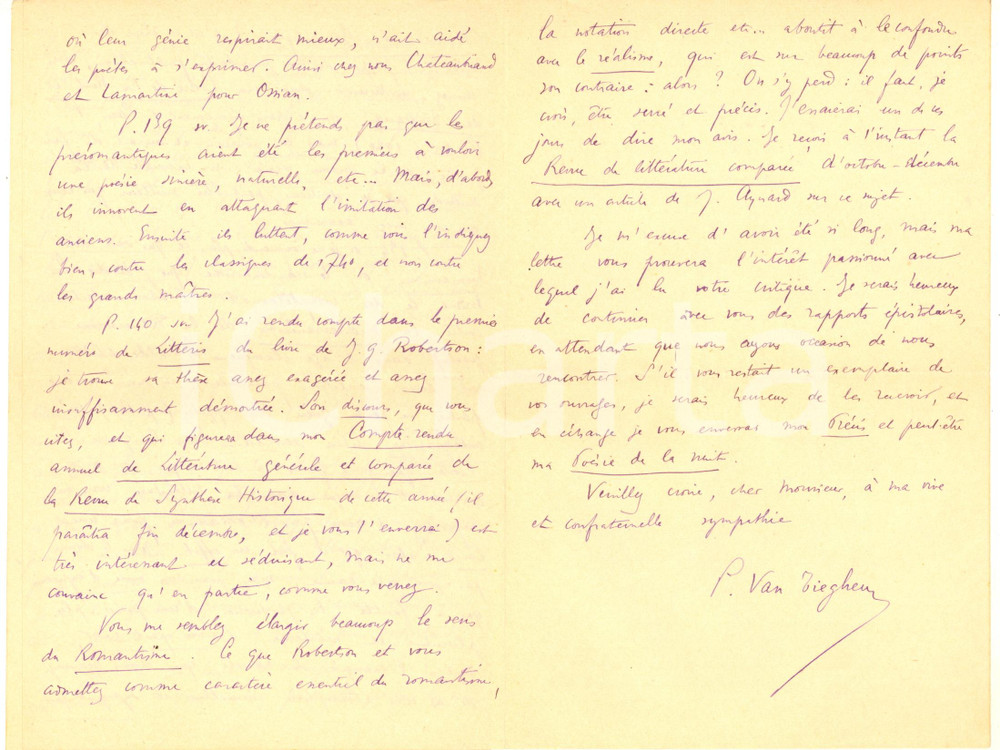 où leur génie respirait mieux, n'ait aidé
les poètes à s'exprimer. Ainsi chez nous Chateaubriand
et Lamartine pour Ossian.
P. 139 sv. Je ne prétends pas que les
préromantiques aient été les premiers à vouloir
une poésie sincère, naturelle, etc... Mais, d'abord,
ils innovent en attaquant l'imitation des
anciens. Ensuite ils luttent, comme vous l'indiquez
bien, contre les classiques de 1740, et non contre
les grands maîtres.
P. 140 sv J'ai rendu compte dans le premier
numéro de Litteris du livre de J. G. Robertson :
je trouve sa thèse assez exagérée et assez
insuffisamment démontrée. Son discours, que vous
citez, et qui figurera dans mon Compte-rendu
annuel de Littérature générale et comparée de
la Revue de Synthèse Historique de cette année (il
paraîtra fin décembre, et je vous l'enverrai) est
très intéressant et séduisant, mais ne me
convainc qu'en partie, comme vous verrez.
Vous me semblez élargir beaucoup le sens
du Romantisme. Ce que Robertson et vous
admettez comme caractère essentiel du romantisme,
la notation directe etc... aboutit à le confondre
avec le réalisme, qui est sur beaucoup de points
son contraire : alors ? On s'y perd : il faut, je
crois, être serré et précis. J'essaierai un de ces
jours de dire mon avis. Je reçois à l'instant la
Revue de littérature comparée d'octobre-décembre
avec un article de J. Aynard sur ce sujet.
Je m'excuse d'avoir été si long, mais ma
lettre vous prouvera l'intérêt passionné avec
lequel j'ai lu votre critique. Je serais heureux
de continuer avec vous des rapports épistolaires,
en attendant que nous ayons occasion de nous
rencontrer. S'il vous restait un exemplaire de
vos ouvrages, je serais heureux de les recevoir, et
en échange je vous enverrai mon Précis et peut-être
ma Poésie de la nuit.
Veuillez croire, cher Monsieur, à ma vive
et confraternelle sympathie
P. Van Tieghem
Charta